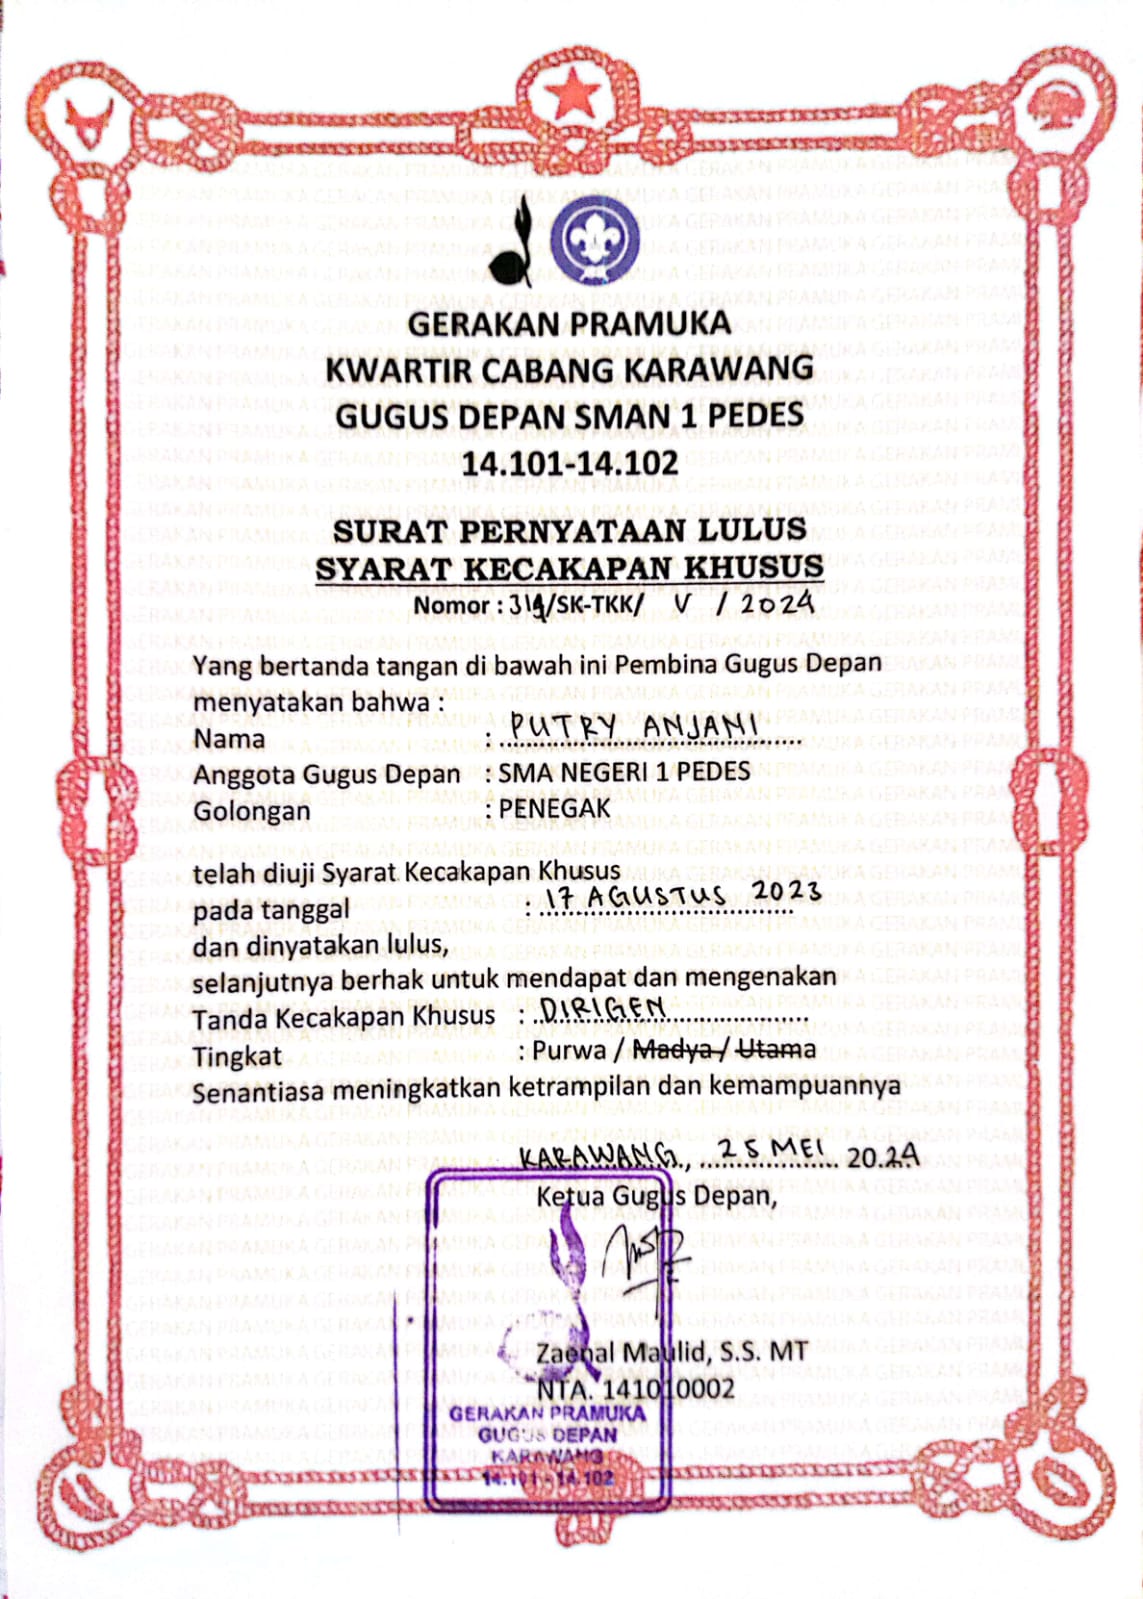 GERAKAN PRAMUKA
KWARTIR CABANG KARAWANG
GUGUS DEPAN SMAN 1 PEDES
14.101-14.102
SURAT PERNYATAAN LULUS
SYARAT KECAKAPAN KHUSUS
Nomor : 314/SK-TKK/ V / 2024
Yang bertanda tangan di bawah ini Pembina Gugus Depan
menyatakan bahwa :
Nama : PUTRI ANJANI
Anggota Gugus Depan : SMA NEGERI 1 PEDES
Golongan : PENEGAK
telah diuji Syarat Kecakapan Khusus
pada tanggal : 17 AGUSTUS 2023
dan dinyatakan lulus,
selanjutnya berhak untuk mendapat dan mengenakan
Tanda Kecakapan Khusus : DIRIGEN
Tingkat : Purwa / Madya / Utama
Senantiasa meningkatkan ketrampilan dan kemampuannya
KARAWANG, 25 MEI 2024
Ketua Gugus Depan,
Zaenal Maulid, S.S. MT
NTA. 141010002
GERAKAN PRAMUKA
GUGUS DEPAN
KARAWANG
14.101 - 14.102